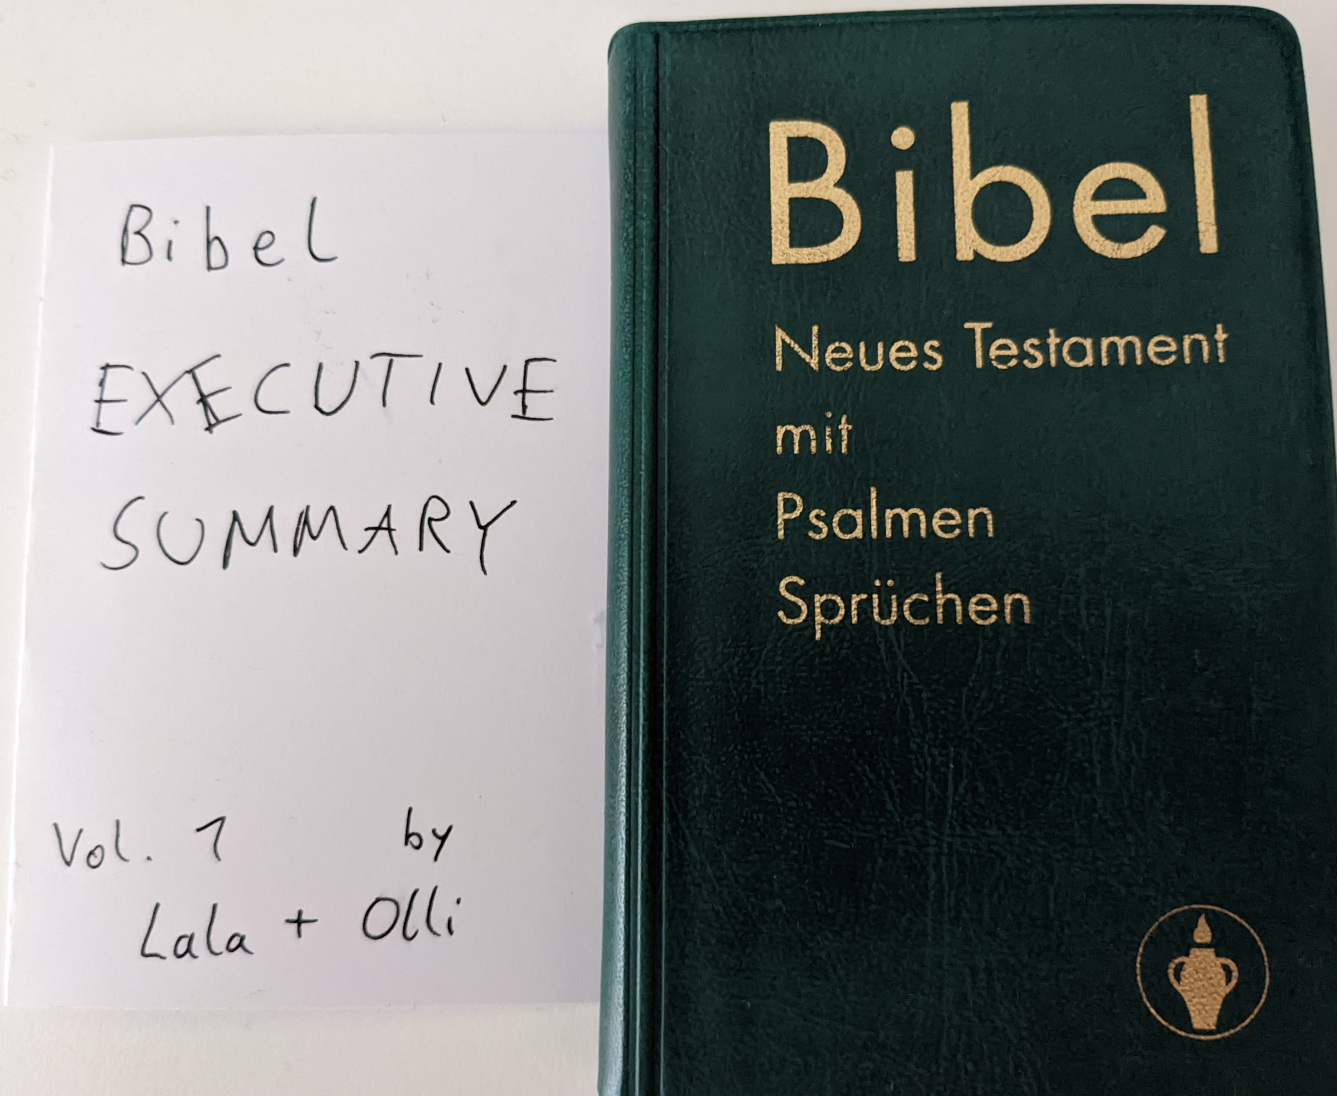 Bibel
EXECUTIVE
SUMMARY
Vol. 1 by
Lala + Olli
Bibel
Neues Testament
mit
Psalmen
Sprüchen